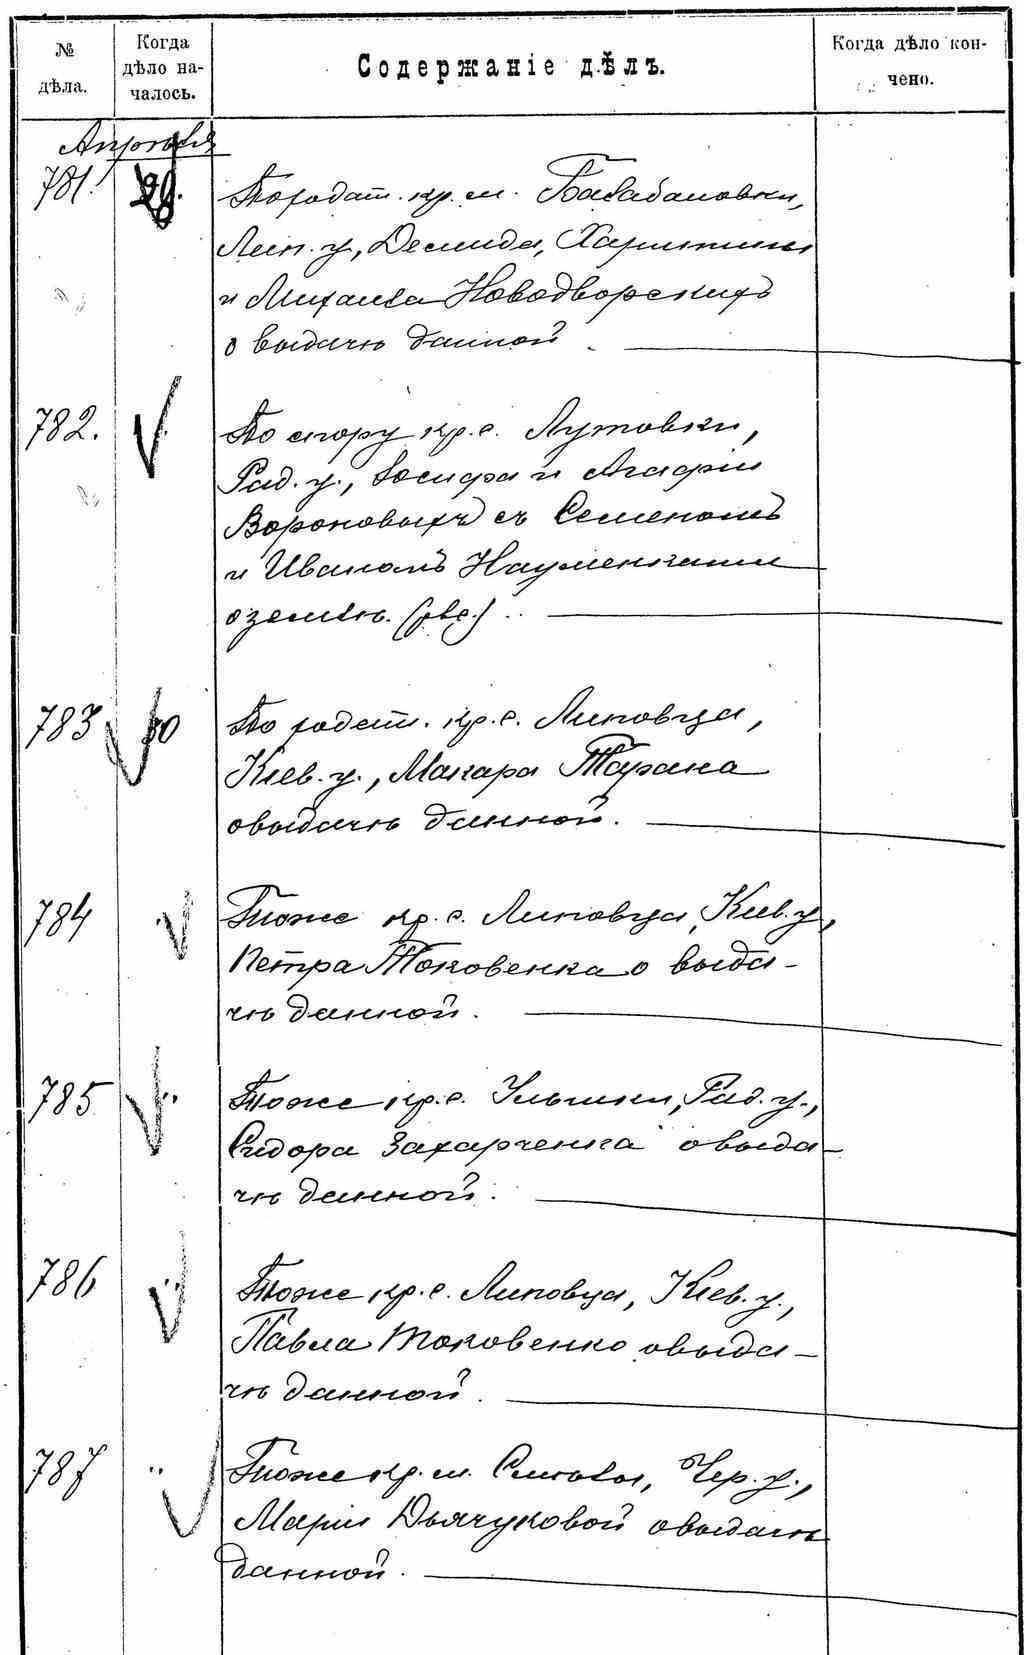 № дѣла.
Когда дѣло началось.
Содержаніе дѣлъ.
Когда дѣло кончено.
Апрѣля
781. 29. По ходат. кр. м. Балабановки,
Лип. у., Демида, Харитины
и Михаила Новодворскихъ
о выдачѣ данной.
782. По спору кр. с. Лутовки,
Рад. у., Іосифа и Агафіи
Вороновыхъ съ Семеномъ
и Иваномъ Науменками
о землѣ.
783 30 По ходат. кр. с. Липовца,
Кіев. у., Макара Тарана
о выдачѣ данной.
784 Тоже кр. с. Липовца, Кіев. у.,
Петра Токовенка о выда-
чѣ данной.
785 " Тоже кр. с. Рад. у.,
Сидора Захарченка о выда-
чѣ данной.
786 " Тоже кр. с. Липовца, Кіев. у.,
Павла Токовенко о выда-
чѣ данной.
787 " Тоже кр. м. Смѣлы, Чер. у.,
Маріи Дьячуковой о выдачѣ
данной.